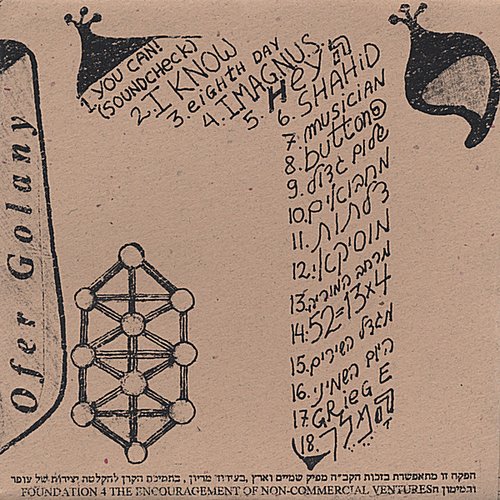 Ofer Golany
1. YOU CAN!
(SOUNDCHECK)
2. I KNOW
3. eiGHTH DAY
4. IMAGNUS
5. Hey
6. SHAHiD
7. musiciAn
8.
9. שלום גדול
10. מחבואים
11. דלתות
12. מוסיקאי
13. מרחב המוריה
14. 52=13x4
15. מגדל השירים
16. היום השמיני
17. GRieG E
18. המלך
הפקה זו מתאפשרת בזכות הקב"ה מפיק שמיים וארץ ,בעידוד מריון, בתמיכת הקרן להקלטת יצירות של עופר
והמימון הFOUNDATION 4 THE ENCOURAGEMENT OF NON-COMMERCIAL VENTURES